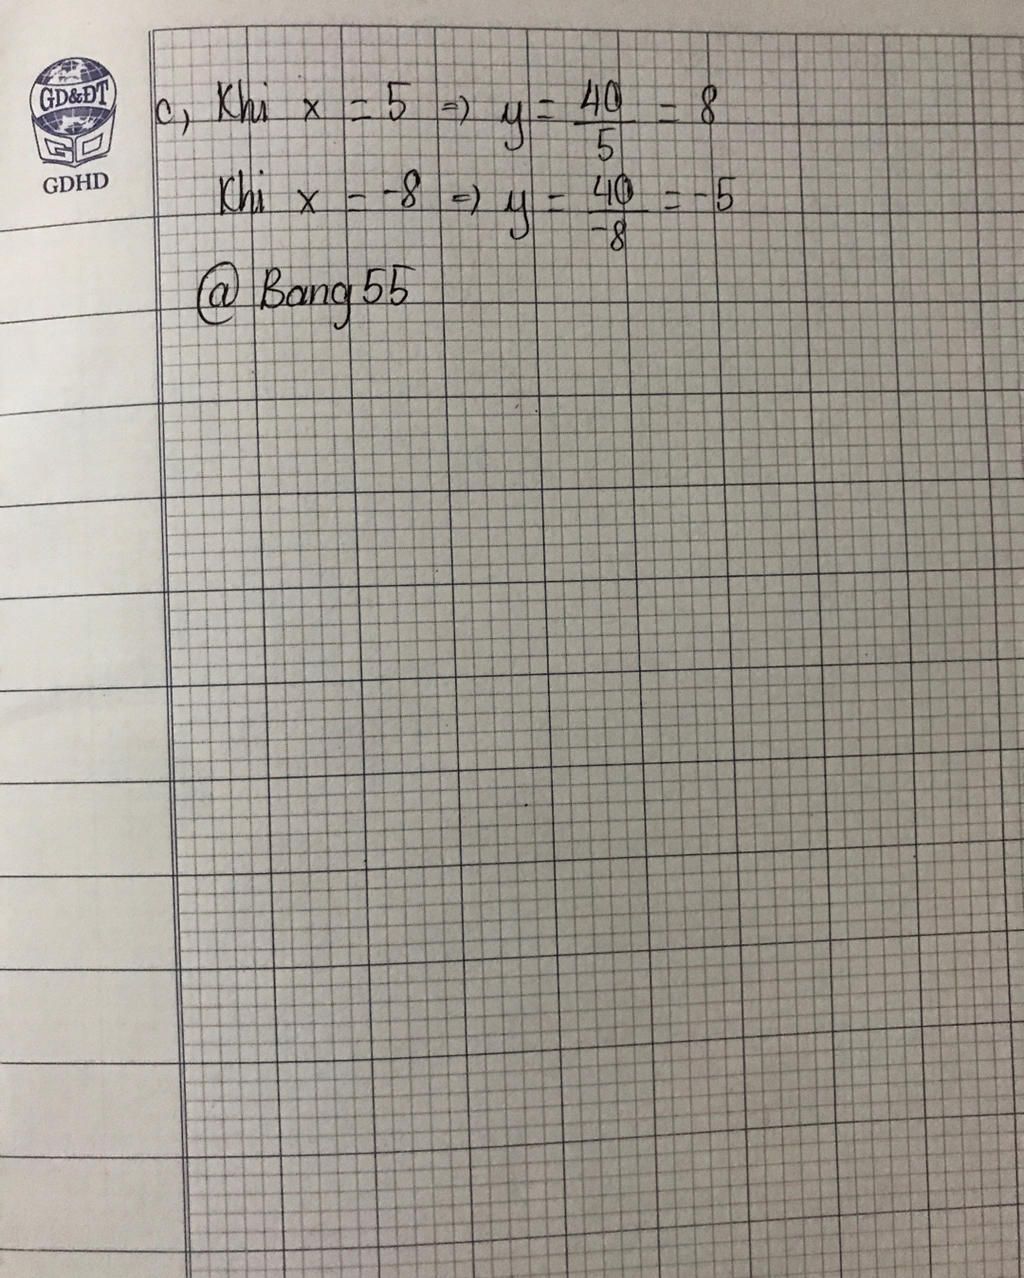 GD&ĐT
GD
GDHD
c, Khi x = 5 => y = 40/5 = 8
Khi x = -8 => y = 40/-8 = -5
@ Bang55